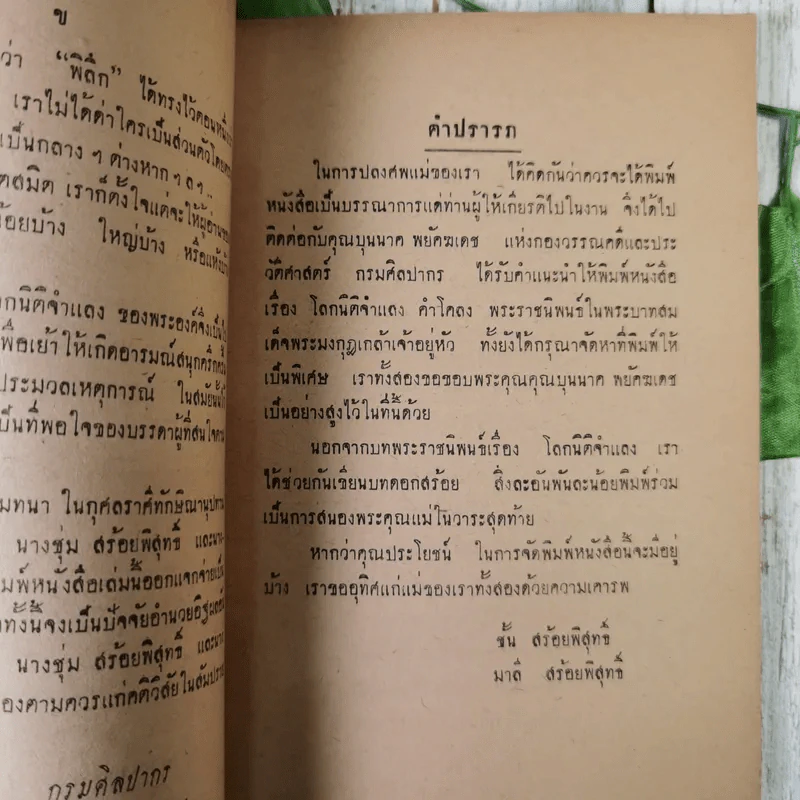 ข
ว่า “พิลึก” ได้ทรงไว้ตอนหนึ่ง
เราไม่ได้ด่าใครเป็นส่วนตัวโดย
เป็นกลาง ๆ ต่างหาก ๆ ลฯ
ตสมิต เราก็ตั้งใจแต่จะให้ผู้อ่าน
น้อยบ้าง ใหญ่บ้าง หรือแห้ง
ลกนิติจำแลง ของพระองค์จึงเป็น
พื่อเย้าให้เกิดอารมณ์สนุกครึก
ประมวลเหตุการณ์ ในสมัยนั้น
ป็นที่พอใจของบรรดาผู้ที่สนใจ
มทนา ในกุศลราศีทักษิณานุปทาน
นางชุ่ม สร้อยพิสุทธิ์ และ
มพ์หนังสือเล่มนี้ออกแจกจ่ายเป็น
ทั้งนี้จงเป็นปัจจัยอำนวยอิฐผลให้
นางชุ่ม สร้อยพิสุทธิ์ และ
องตามควรแก่คติวิสัยในสัมปราย
กรมศิลปากร
คำปรารภ
ในการปลงศพแม่ของเรา ได้คิดกันว่าควรจะได้พิมพ์
หนังสือเป็นบรรณาการแด่ท่านผู้ให้เกียรติไปในงาน จึงได้ไป
ติดต่อกับคุณบุนนาค พยัคฆเดช แห่งกองวรรณคดีและประ
วัติศาสตร์ กรมศิลปากร ได้รับคำแนะนำให้พิมพ์หนังสือ
เรื่อง โลกนิติจำแลง คำโคลง พระราชนิพนธ์ในพระบาทสม
เด็จพระมงกุฎเกล้าเจ้าอยู่หัว ทั้งยังได้กรุณาจัดหาที่พิมพ์ให้
เป็นพิเศษ เราทั้งสองขอขอบพระคุณคุณบุนนาค พยัคฆเดช
เป็นอย่างสูงไว้ในที่นี้ด้วย
นอกจากบทพระราชนิพนธ์เรื่อง โลกนิติจำแลง เรา
ได้ช่วยกันเขียนบทดอกสร้อย สิ่งละอันพันละน้อยพิมพ์ร่วม
เป็นการสนองพระคุณแม่ในวาระสุดท้าย
หากว่าคุณประโยชน์ ในการจัดพิมพ์หนังสือนี้จะมีอยู่
บ้าง เราขออุทิศแก่แม่ของเราทั้งสองด้วยความเคารพ
ชั้น สร้อยพิสุทธิ์
มาลี สร้อยพิสุทธิ์